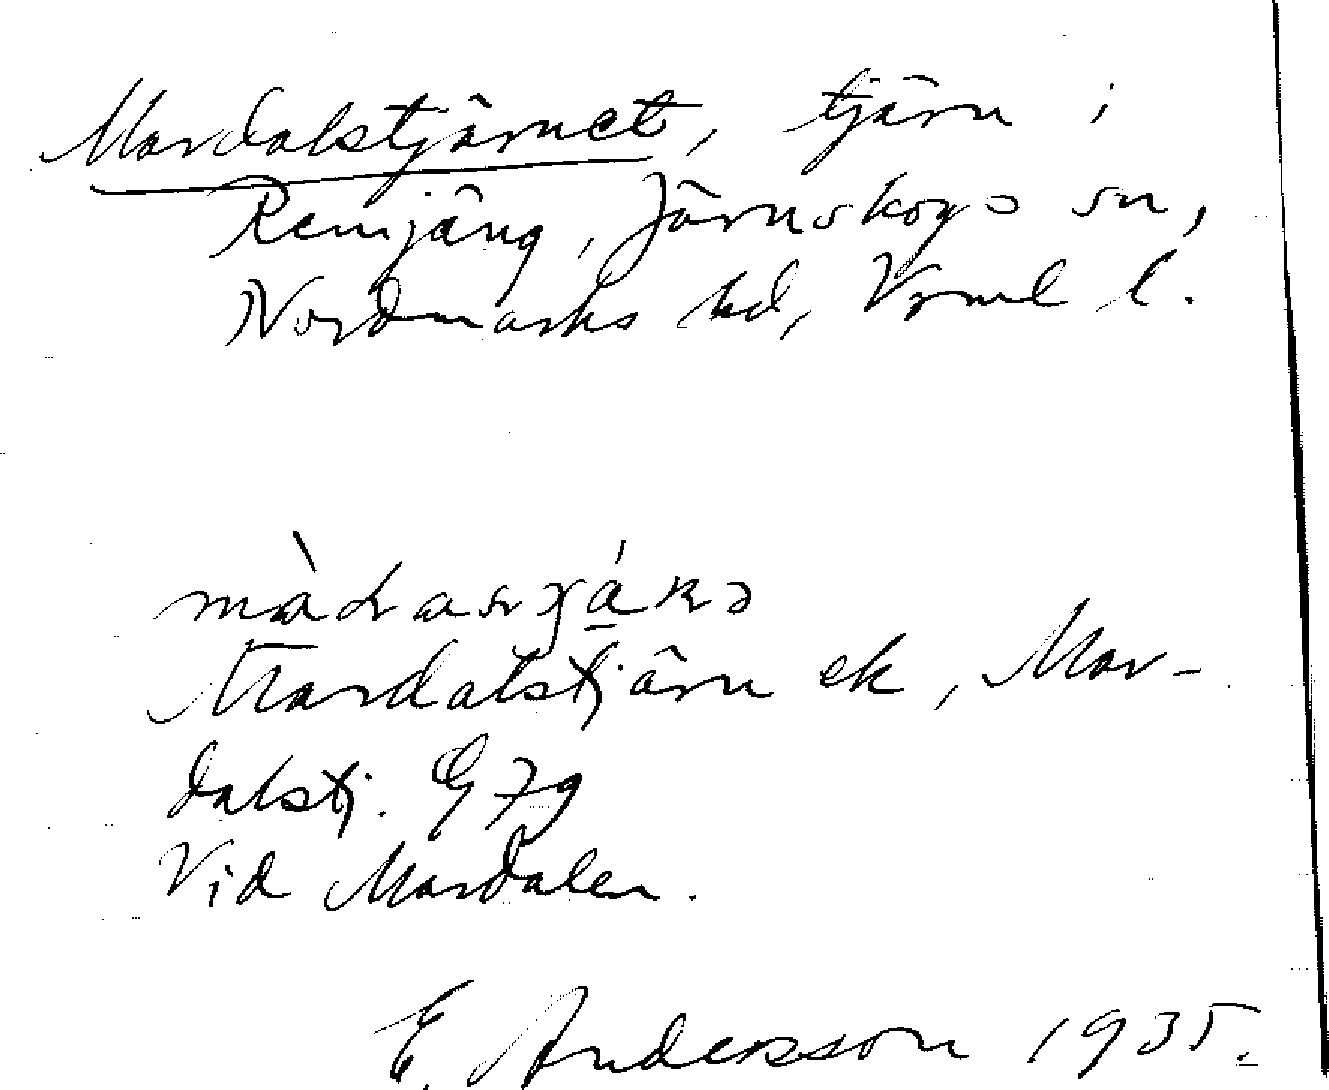 Mardalstjärnet, tjärn i
Remjäng, Järnskogs sn,
Nordmarks hd, Vrml l.
Mardalstjärn ek, Mar-
dalstj. G 79
Vid Mardalen.
E. Andersson 1935.